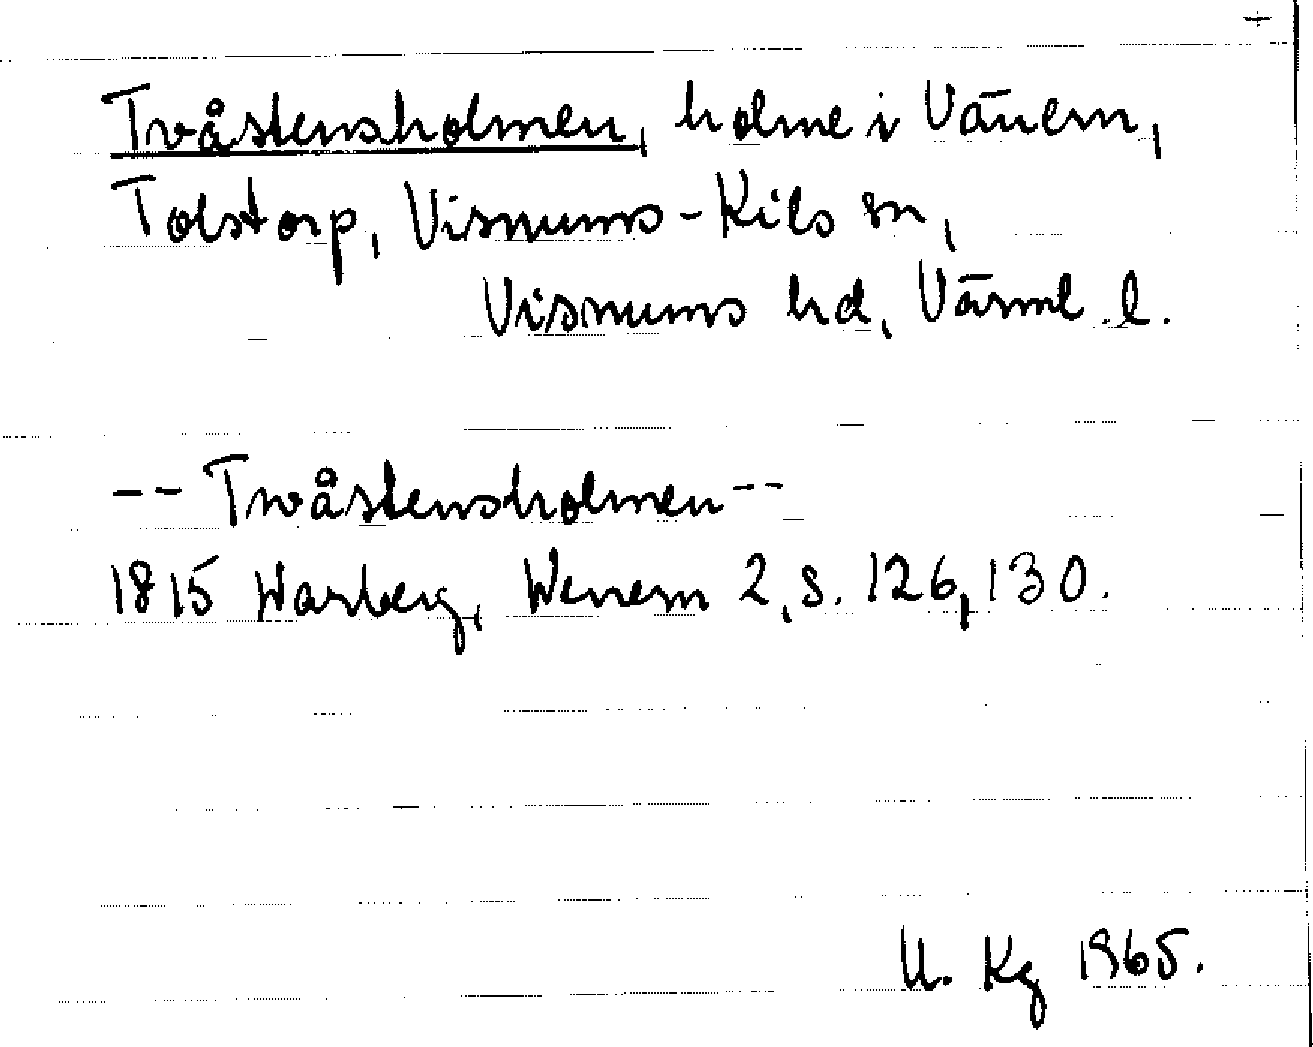 +
Tvåstensholmen, holme i Vänern,
Tolstorp, Visnums-Kils sn,
Visnums hd, Värml. l.
-- Twåstensholmen --
1815 Warberg, Wenern 2, s. 126, 130.
U. Kg 1965.